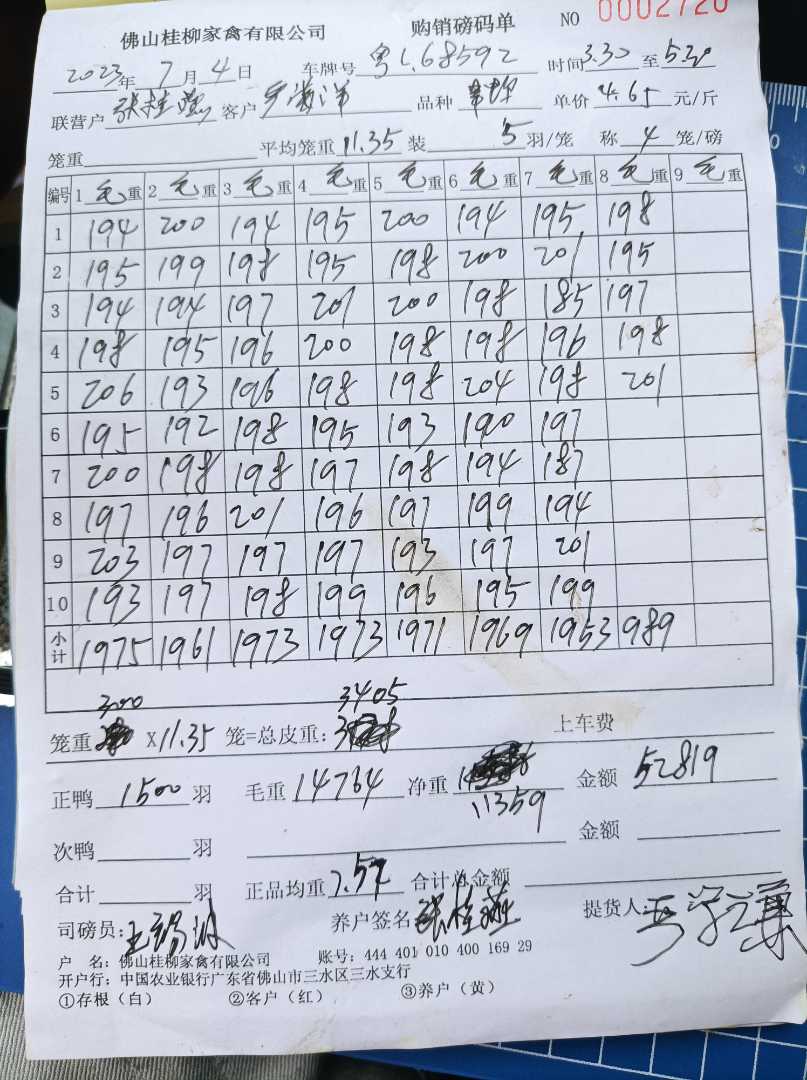 佛山桂柳家禽有限公司 购销磅码单 NO 0002720
2023年 7月 4日 车牌号 粤L68592 时间 3.30 至 5.30
联营户 张桂燕 客户 品种 单价 4.65 元/斤
笼重 平均笼重 11.35 装 5 羽/笼 称 4 笼/磅
编号 1 毛重 2 毛重 3 毛重 4 毛重 5 毛重 6 毛重 7 毛重 8 毛重 9 毛重
1 194 200 194 195 200 194 195 198
2 195 199 198 195 198 200 201 195
3 194 194 197 201 200 198 185 197
4 198 195 196 200 198 198 196 198
5 206 193 196 198 198 204 198 201
6 195 192 198 195 193 190 197
7 200 198 198 197 198 194 187
8 197 196 201 196 197 199 194
9 203 197 197 197 193 197 201
10 193 197 198 199 196 195 199
小计 1975 1961 1973 1973 1971 1969 1953 989
300 3405
笼重 X11.35 笼=总皮重: 上车费
正鸭 1500 羽 毛重 14764 净重 11359 金额 52819
次鸭 羽 金额
合计 羽 正品均重 7.57 合计总金额
司磅员: 王锡波 养户签名 张桂燕 提货人:
户 名: 佛山桂柳家禽有限公司 账号: 444 401 010 400 169 29
开户行: 中国农业银行广东省佛山市三水区三水支行
①存根（白） ②客户（红） ③养户（黄）